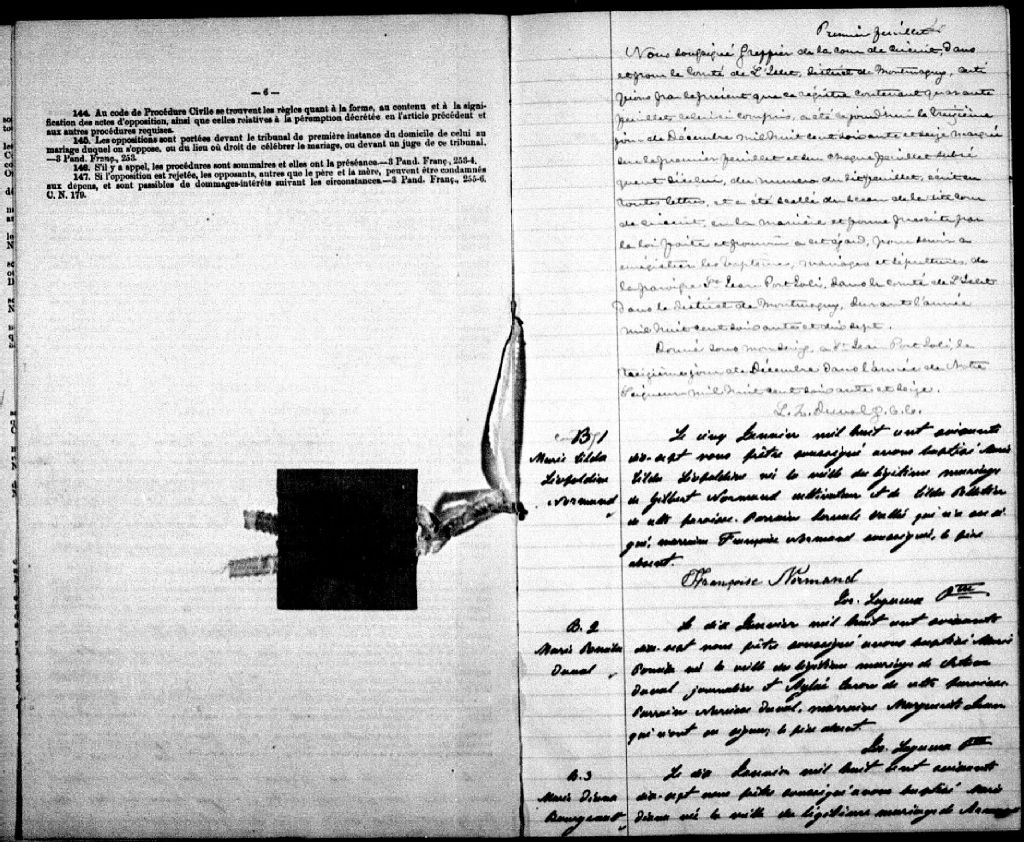 — 6 —
144. Au code de Procédure Civile se trouvent les règles quant à la forme, au contenu et à la signi-
fication des actes d'opposition, ainsi que celles relatives à la péremption décrétée en l'article précédent et
aux autres procédures requises.
145. Les oppositions sont portées devant le tribunal de première instance du domicile de celui au
mariage duquel on s'oppose, ou du lieu où droit de célébrer le mariage, ou devant un juge de ce tribunal.
—3 Pand. Franç., 253.
146. S'il y a appel, les procédures sont sommaires et elles ont la préséance.—3 Pand. Franç., 253-4.
147. Si l'opposition est rejetée, les opposants, autres que le père et la mère, peuvent être condamnés
aux dépens, et sont passibles de dommages-intérêts suivant les circonstances.—3 Pand. Franç., 255-6.
C. N. 179.
Premier feuillet
Nous soussigné Greffier de la cour de circuit, dans
et pour le Comté de L'Islet, district de Montmagny, certi
fions par le présent que ce régistre contenant quarante
feuillets celui ci compris, a été aujourd'hui le treizième
jour de Décembre mil huit cent soixante et seize marqué
sur le premier feuillet et sur chaque feuillet subsé
quent d'icelui, du numéro du dit feuillet, écrit en
toutes lettres, et a été scellé du sceau de la dite cour
de circuit, en la manière et forme prescrite par
la loi faite et pourvue à cet égard, pour servir à
enrégistrer les baptêmes, mariages et sépultures de
la paroisse St Jean Port Joli, dans le comté de L'Islet
dans le district de Montmagny, durant l'année
mil huit cent soixante et dix sept.
Donné sous mon seing, à St Jean Port Joli, le
treizième jour de Décembre dans l'année de Notre
Seigneur mil huit cent soixante et seize.
L. Z. Duval g. c. c.
B 1
Marie Lilda
Léopoldine
Normand
Le cinq Janvier mil huit cent soixante
dix-sept nous prêtre soussigné avons baptisé Marie
Lilda Léopoldine née la veille du légitime mariage
de Gilbert Normand cultivateur et de Lilda Pelletier
de cette paroisse. Parrain Vallé qui n'a si
gné, marraine Françoise Normand soussignée, le père
absent.
Françoise Normand
Jos. Lagueux Ptre
B. 2
Marie
Duval
Le dix Janvier mil huit cent soixante
dix-sept nous prêtre soussigné avons baptisé Marie
née la veille du légitime mariage de
Duval journalier et Caron de cette paroisse.
Parrain Narcisse Duval, marraine Marguerite
qui n'ont su signer, le père absent.
Jos. Lagueux Ptre
B. 3
Marie Diana
Bourgault
Le dix Janvier mil huit cent soixante
dix-sept nous prêtre soussigné avons baptisé Marie
Diana née la veille du légitime mariage de